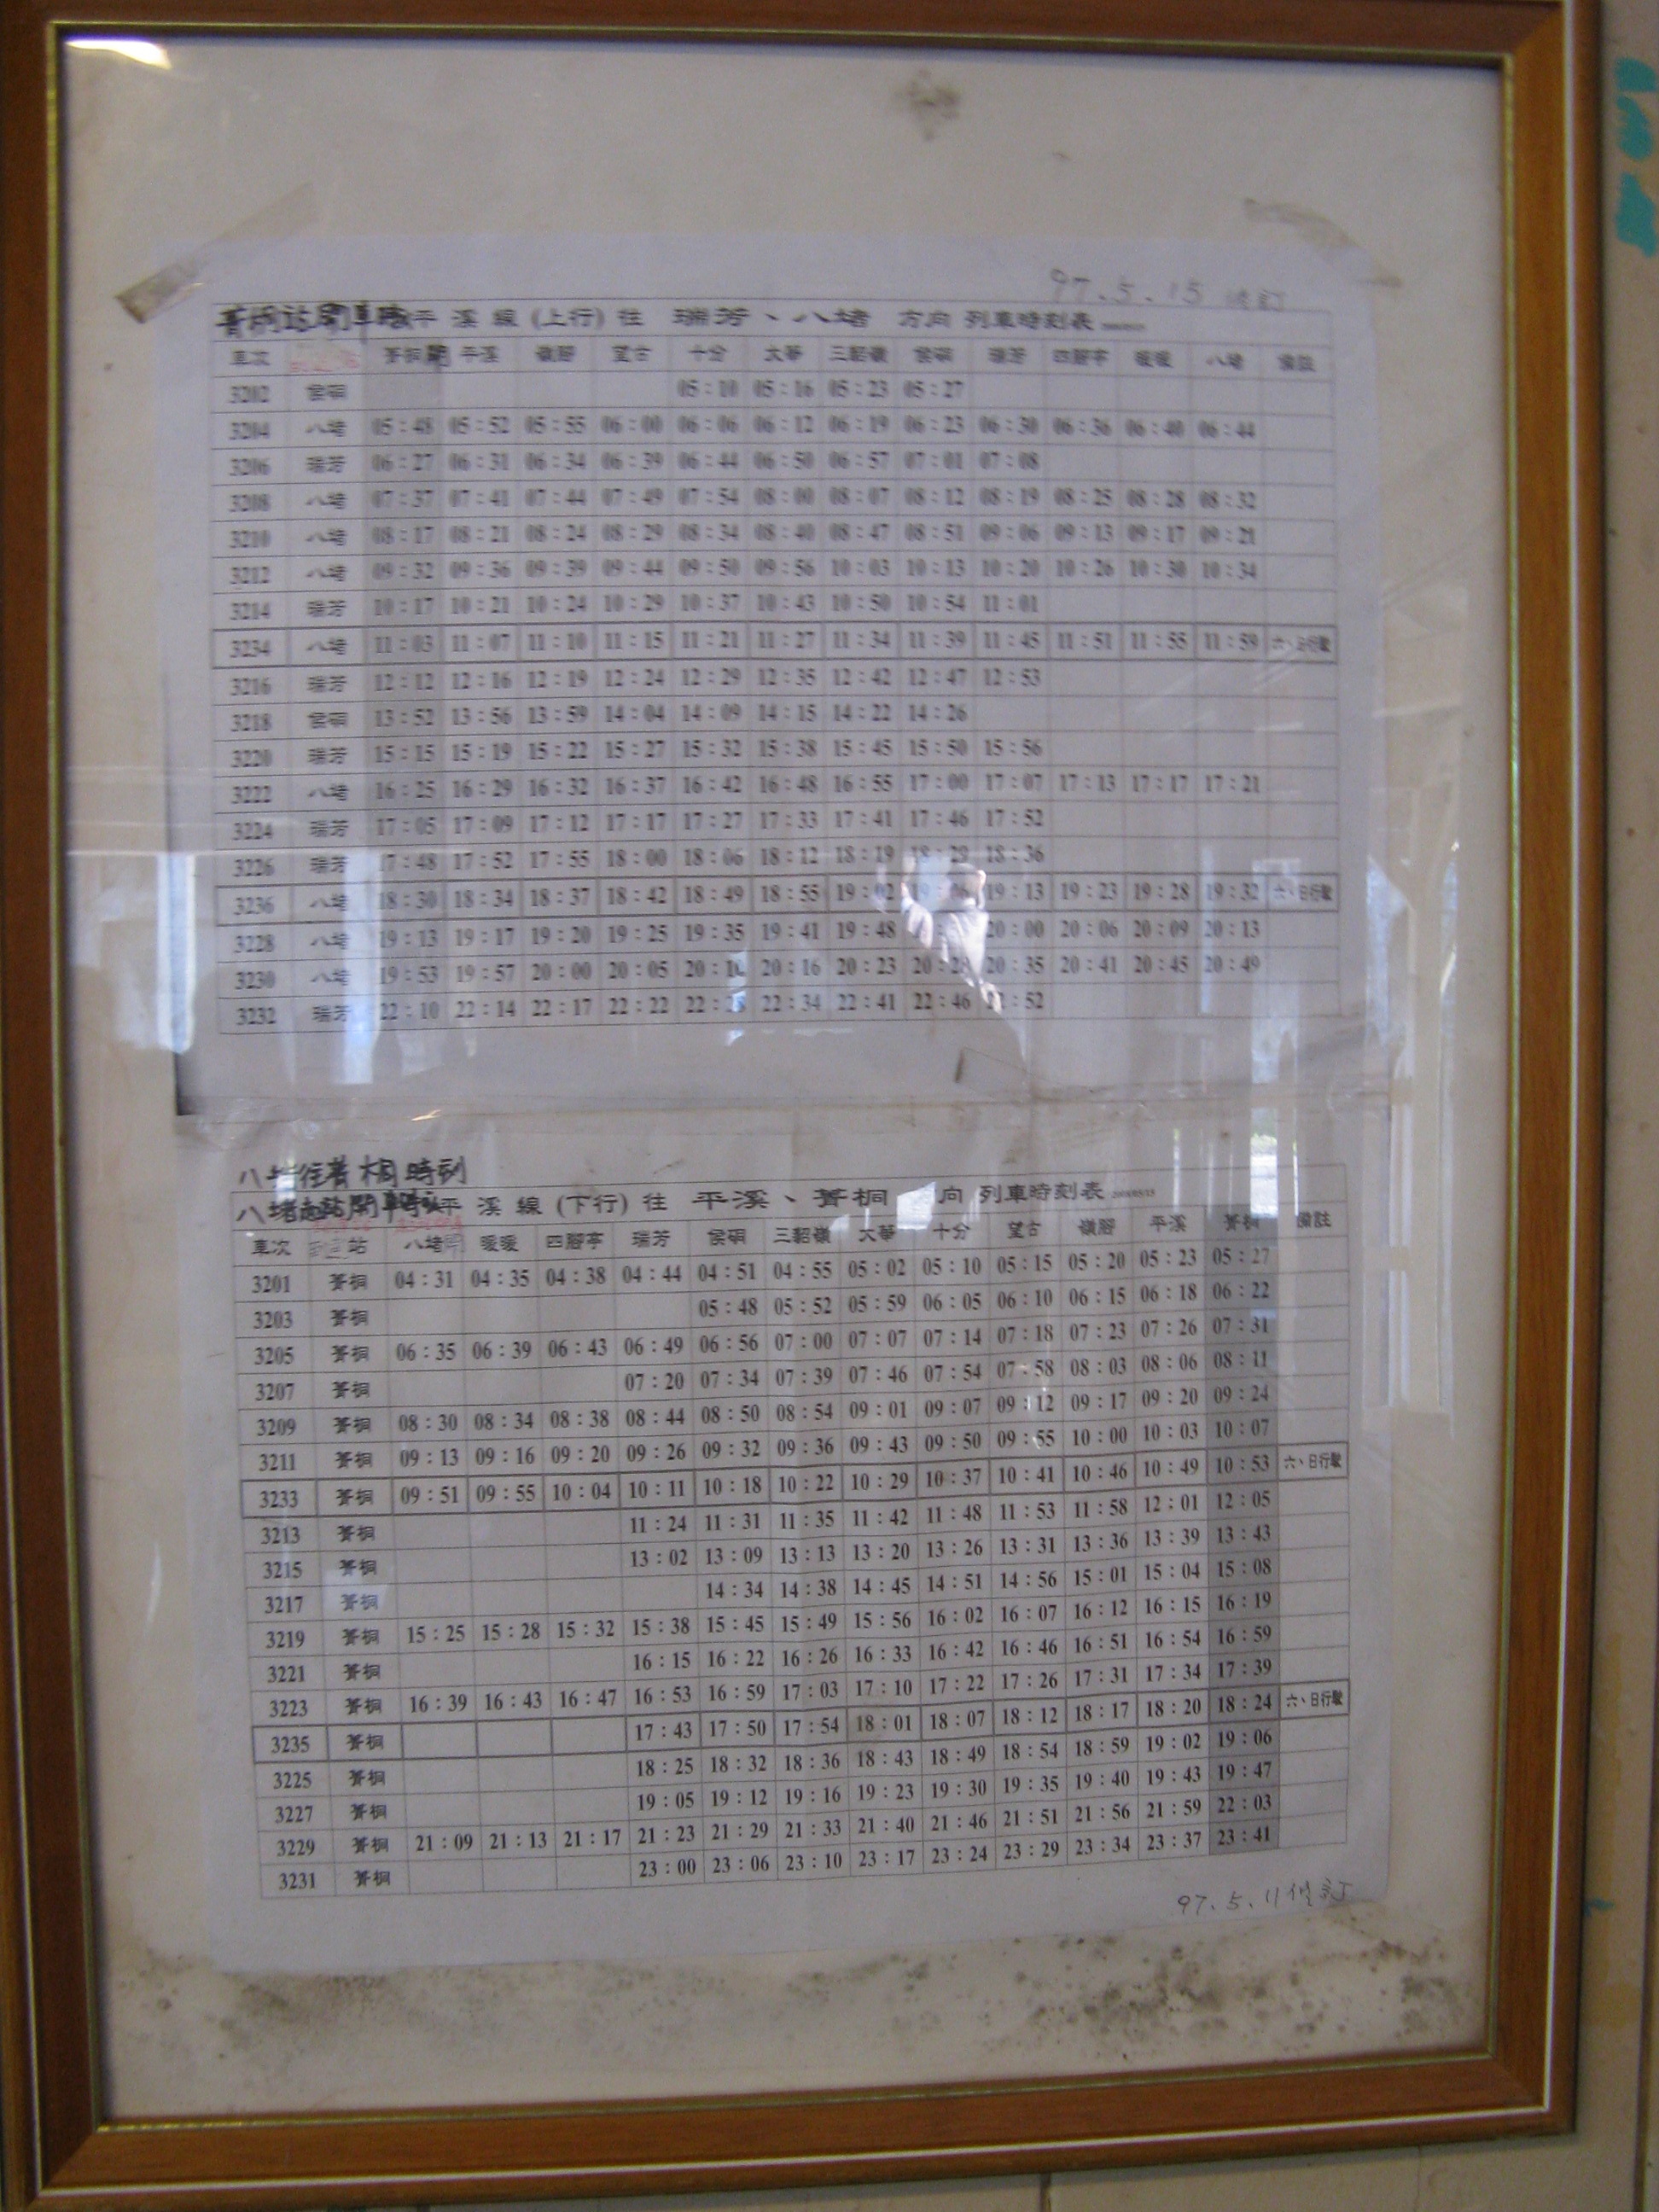 97.5.15 修訂
菁桐站開車時刻平溪線 (上行) 往 瑞芳、八堵 方向 列車時刻表
車次 菁桐 平溪 嶺腳 望古 十分 大華 三貂嶺 侯硐 瑞芳 四腳亭 暖暖 八堵 備註
3202 侯硐 05:10 05:16 05:23 05:27
3204 八堵 05:48 05:52 05:55 06:00 06:06 06:12 06:19 06:23 06:30 06:36 06:40 06:44
3206 瑞芳 06:27 06:31 06:34 06:39 06:44 06:50 06:57 07:01 07:08
3208 八堵 07:37 07:41 07:44 07:49 07:54 08:00 08:07 08:12 08:19 08:25 08:28 08:32
3210 八堵 08:17 08:21 08:24 08:29 08:34 08:40 08:47 08:51 09:06 09:13 09:17 09:21
3212 八堵 09:32 09:36 09:39 09:44 09:50 09:56 10:03 10:13 10:20 10:26 10:30 10:34
3214 瑞芳 10:17 10:21 10:24 10:29 10:37 10:43 10:50 10:54 11:01
3234 八堵 11:03 11:07 11:10 11:15 11:21 11:27 11:34 11:39 11:45 11:51 11:55 11:59 六、日行駛
3216 瑞芳 12:12 12:16 12:19 12:24 12:29 12:35 12:42 12:47 12:53
3218 侯硐 13:52 13:56 13:59 14:04 14:09 14:15 14:22 14:26
3220 瑞芳 15:15 15:19 15:22 15:27 15:32 15:38 15:45 15:50 15:56
3222 八堵 16:25 16:29 16:32 16:37 16:42 16:48 16:55 17:00 17:07 17:13 17:17 17:21
3224 瑞芳 17:05 17:09 17:12 17:17 17:27 17:33 17:41 17:46 17:52
3226 瑞芳 17:48 17:52 17:55 18:00 18:06 18:12 18:19 18:29 18:36
3236 八堵 18:30 18:34 18:37 18:42 18:49 18:55 19:02 19:06 19:13 19:23 19:28 19:32 六、日行駛
3228 八堵 19:13 19:17 19:20 19:25 19:35 19:41 19:48 20:00 20:06 20:09 20:13
3230 八堵 19:53 19:57 20:00 20:05 20:16 20:23 20:28 20:35 20:41 20:45 20:49
3232 瑞芳 22:10 22:14 22:17 22:22 22:28 22:34 22:41 22:46 22:52
八堵往菁桐時刻
八堵站開車時刻平溪線 (下行) 往 平溪、菁桐 向 列車時刻表
車次 站 八堵 暖暖 四腳亭 瑞芳 侯硐 三貂嶺 大華 十分 望古 嶺腳 平溪 菁桐 備註
3201 菁桐 04:31 04:35 04:38 04:44 04:51 04:55 05:02 05:10 05:15 05:20 05:23 05:27
3203 菁桐 05:48 05:52 05:59 06:05 06:10 06:15 06:18 06:22
3205 菁桐 06:35 06:39 06:43 06:49 06:56 07:00 07:07 07:14 07:18 07:23 07:26 07:31
3207 菁桐 07:20 07:34 07:39 07:46 07:54 07:58 08:03 08:06 08:11
3209 菁桐 08:30 08:34 08:38 08:44 08:50 08:54 09:01 09:07 09:12 09:17 09:20 09:24
3211 菁桐 09:13 09:16 09:20 09:26 09:32 09:36 09:43 09:50 09:55 10:00 10:03 10:07
3233 菁桐 09:51 09:55 10:04 10:11 10:18 10:22 10:29 10:37 10:41 10:46 10:49 10:53 六、日行駛
3213 菁桐 11:24 11:31 11:35 11:42 11:48 11:53 11:58 12:01 12:05
3215 菁桐 13:02 13:09 13:13 13:20 13:26 13:31 13:36 13:39 13:43
3217 菁桐 14:34 14:38 14:45 14:51 14:56 15:01 15:04 15:08
3219 菁桐 15:25 15:28 15:32 15:38 15:45 15:49 15:56 16:02 16:07 16:12 16:15 16:19
3221 菁桐 16:15 16:22 16:26 16:33 16:42 16:46 16:51 16:54 16:59
3223 菁桐 16:39 16:43 16:47 16:53 16:59 17:03 17:10 17:22 17:26 17:31 17:34 17:39
3235 菁桐 17:43 17:50 17:54 18:01 18:07 18:12 18:17 18:20 18:24 六、日行駛
3225 菁桐 18:25 18:32 18:36 18:43 18:49 18:54 18:59 19:02 19:06
3227 菁桐 19:05 19:12 19:16 19:23 19:30 19:35 19:40 19:43 19:47
3229 菁桐 21:09 21:13 21:17 21:23 21:29 21:33 21:40 21:46 21:51 21:56 21:59 22:03
3231 菁桐 23:00 23:06 23:10 23:17 23:24 23:29 23:34 23:37 23:41
97.5.11修訂